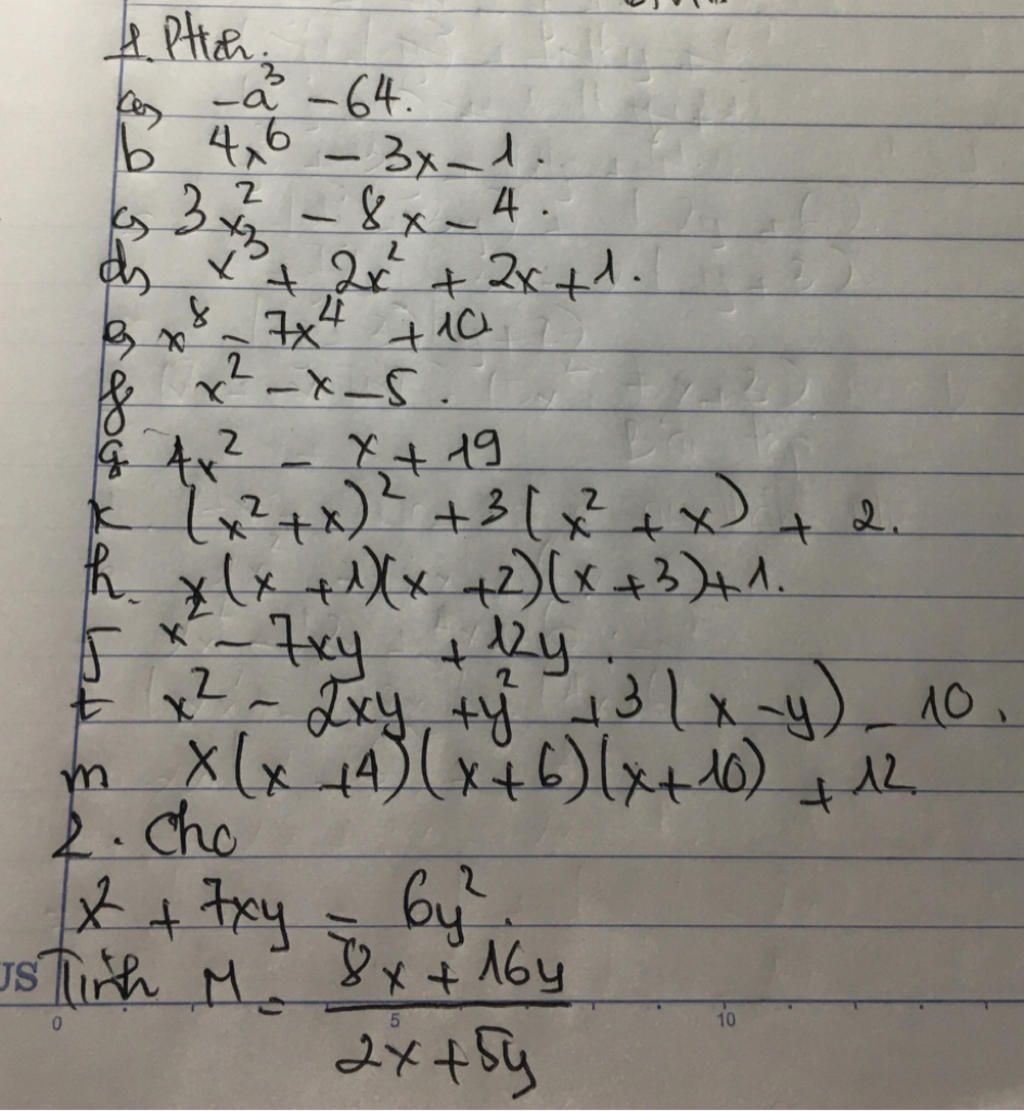 1. Ptích.
a, -a³ - 64.
b 4x⁶ - 3x - 1.
c, 3x² - 8x - 4.
d, x³ + 2x² + 2x + 1.
e, x⁸ - 7x⁴ + 10
f x² - x - 5.
g 4x² - x + 19
k (x² + x)² + 3(x² + x) + 2.
h. x(x + 1)(x + 2)(x + 3) + 1.
j x² - 7xy + 12y.
t x² - 2xy + y² + 3(x - y) - 10.
m x(x + 4)(x + 6)(x + 10) + 12
2. Cho
x² + 7xy = 6y².
US Tính M = \frac{8x + 16y}{2x + 5y}
0 5 10